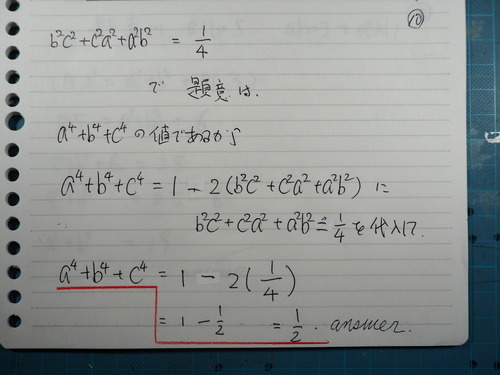 ⑩
b²c²+c²a²+a²b² = 1/4
で 題意は、
a⁴+b⁴+c⁴の値であるから
a⁴+b⁴+c⁴ = 1 - 2(b²c²+c²a²+a²b²) に
b²c²+c²a²+a²b² = 1/4 を代入して.
a⁴+b⁴+c⁴ = 1 - 2(1/4)
= 1 - 1/2 = 1/2. answer.